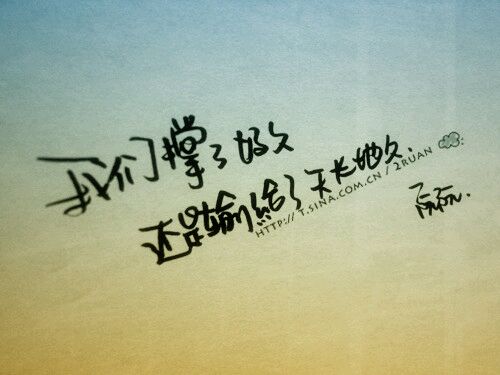 我们撑了好久
还是输给了天长地久.
HTTP://T.SINA.COM.CN/2RUAN